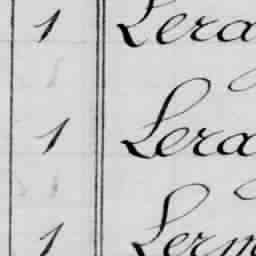 1 Lera
1 Lera
1 Lerm